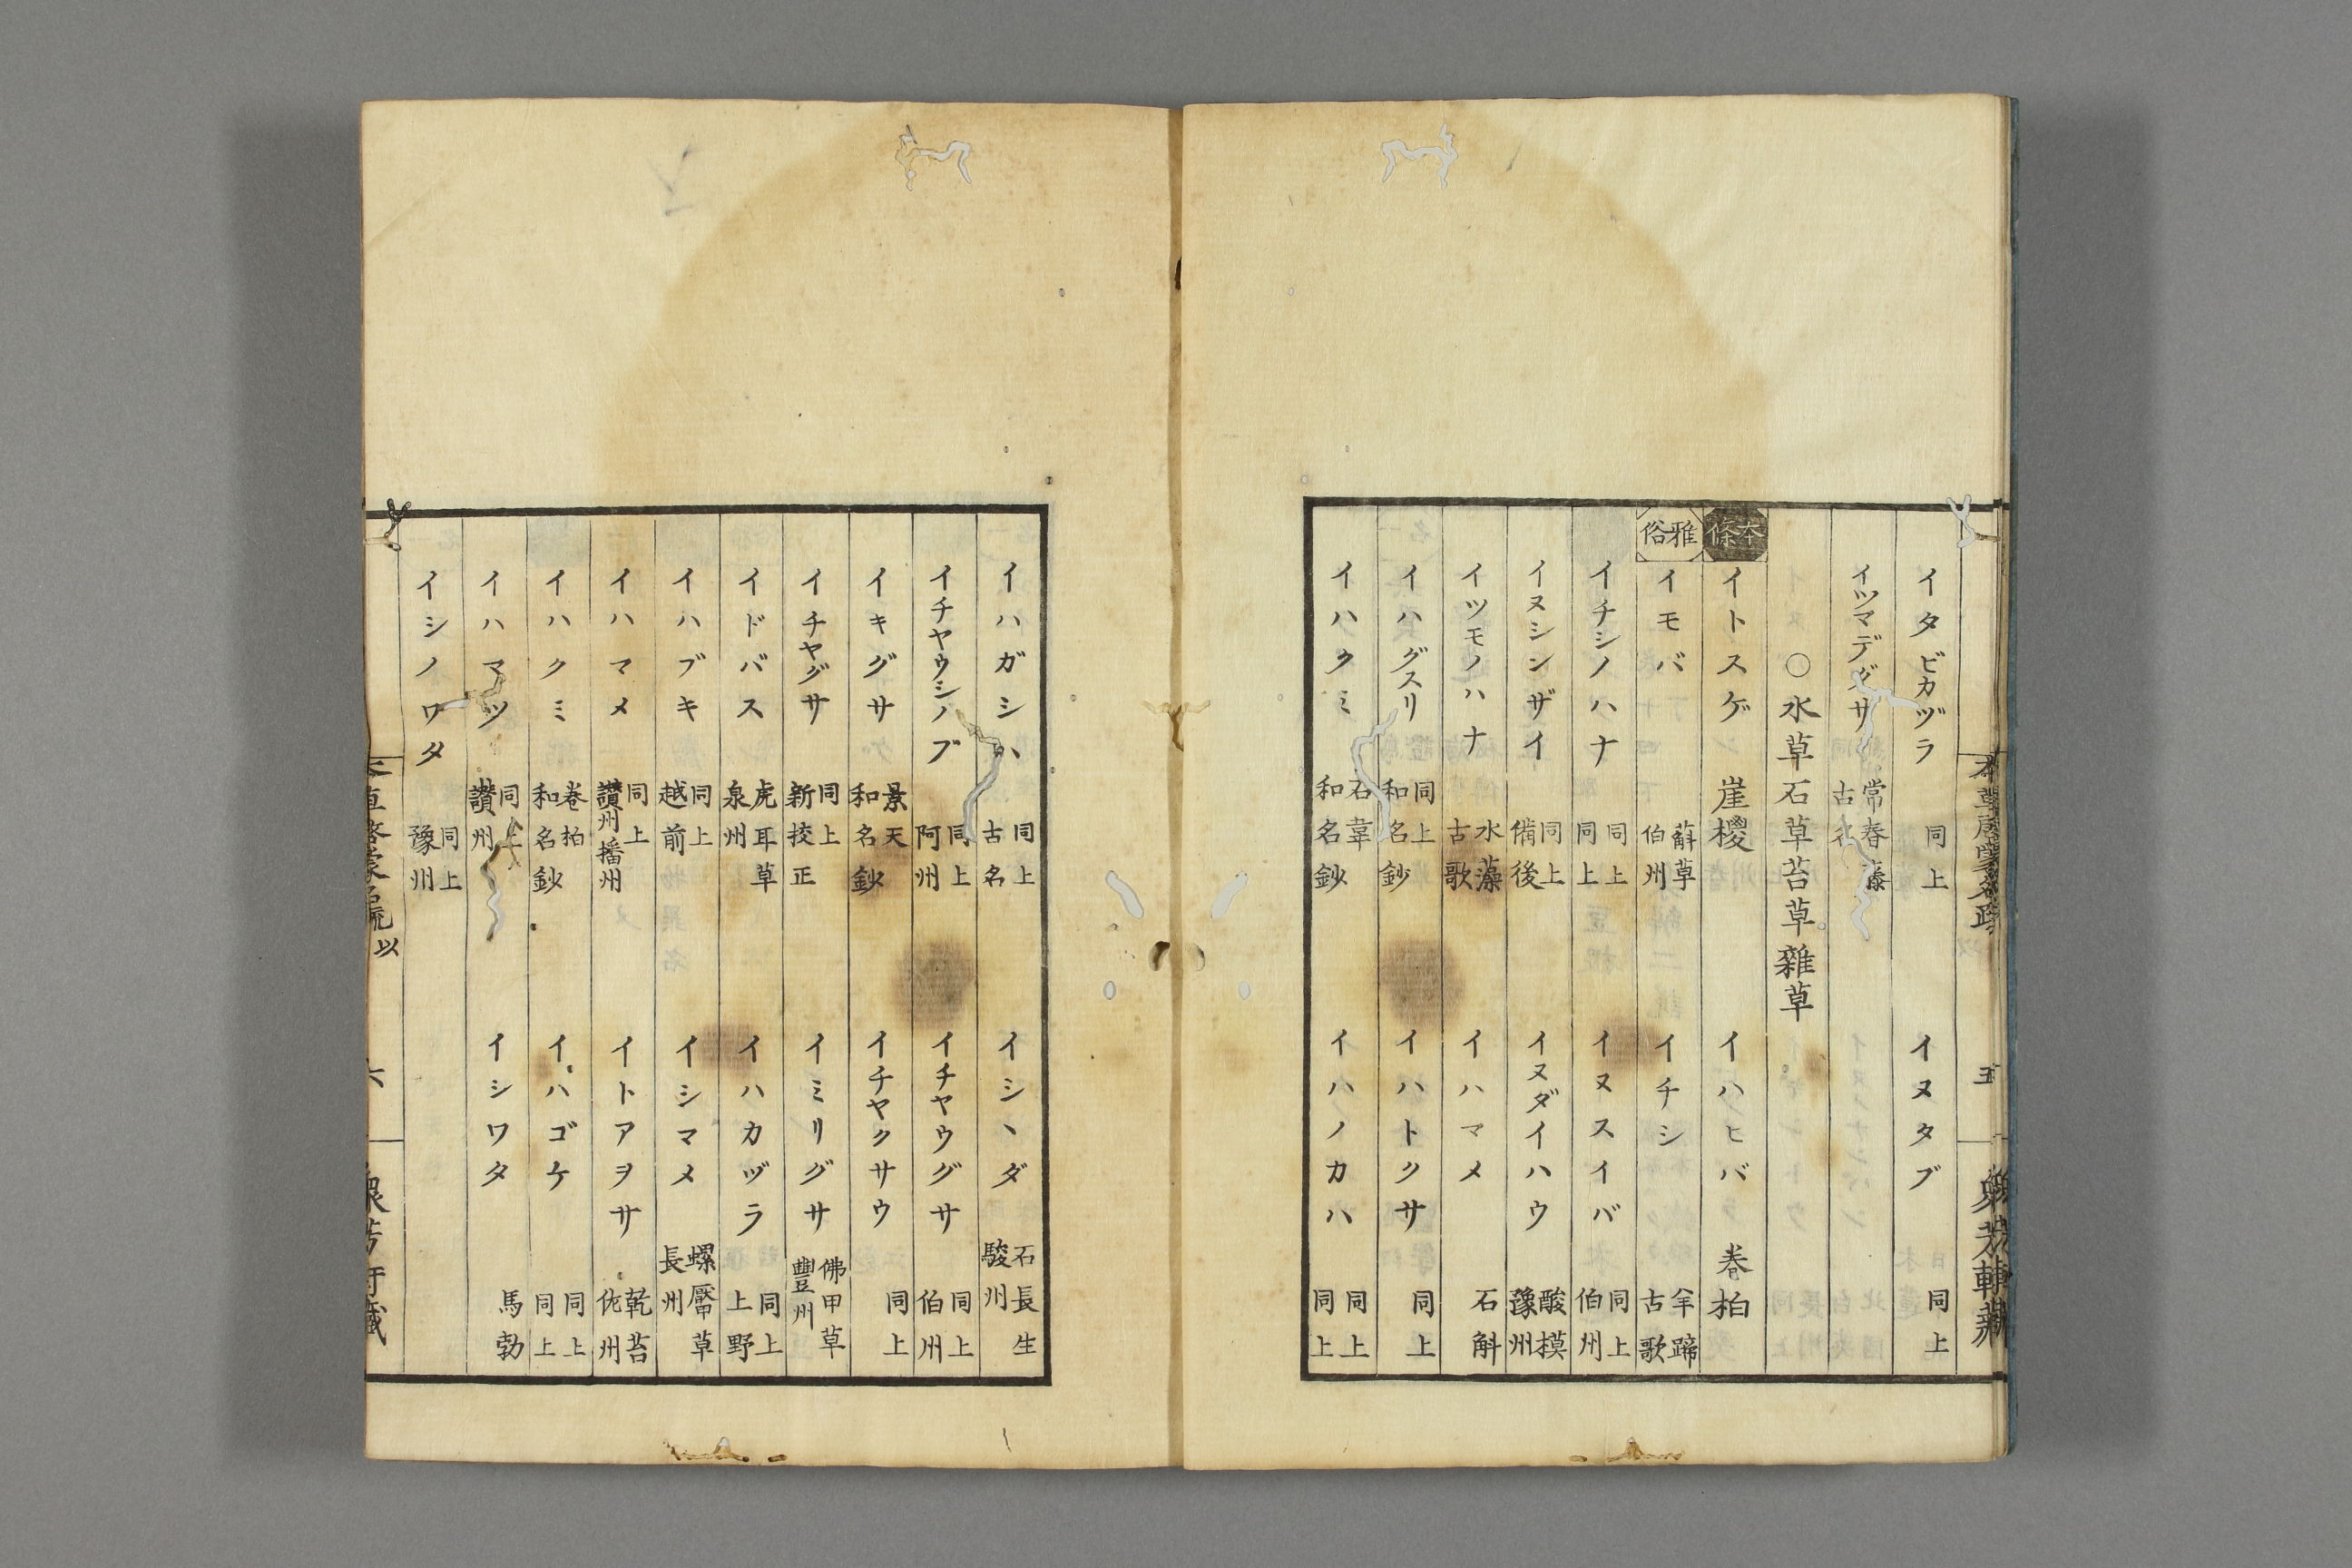 本草啓蒙名疏
五
衆芳軒藏
イタビカヅラ 同上 イヌタブ 同上
イツマデグサ 常春藤 古名
○水草石草苔草雜草
本條 イトスゲ 崖椶 イハヒバ 巻柏
雅俗 イモバ 蘚草 伯州 イチシ 羊蹄 古歌
イチシノハナ 同上 同上 イヌスイバ 同上 伯州
イヌシンザイ 同上 備後 イヌダイハウ 酸模 豫州
イツモノハナ 水藻 古歌 イハマメ 石斛
イハグスリ 同上 和名鈔 イハトクサ 同上
イハクミ 石韋 和名鈔 イハノカハ 同上 同上
イハガシハ 同上 古名 イシヽダ 石長生 駿州
イチヤウシノブ 同上 阿州 イチヤウグサ 同上 伯州
イキグサ 景天 和名鈔 イチヤクサウ 同上
イチヤグサ 同上 新挍正 イミリグサ 佛甲草 豐州
イドバス 虎耳草 泉州 イハカヅラ 同上 上野
イハブキ 同上 越前 イシマメ 螺厴草 長州
イハマメ 同上 讚州播州 イトアヲサ 乾苔 佐州
イハクミ 巻柏 和名鈔 イハゴケ 同上 同上
イハマツ 同上 讚州 イシワタ 馬勃
イシノワタ 同上 豫州
以
六